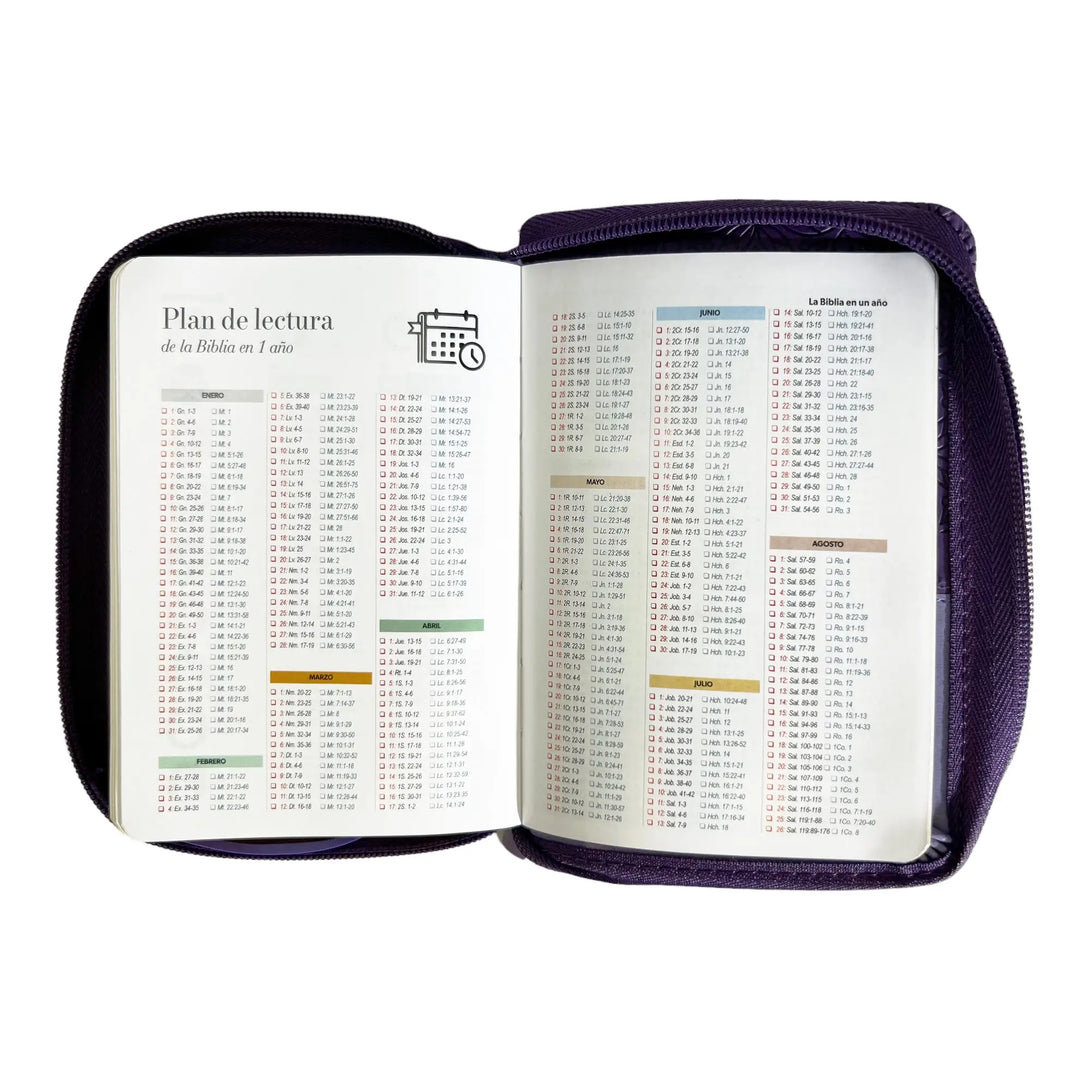 Plan de lectura
de la Biblia en 1 año
ENERO
1: Gn. 1-3 Mt. 1
2: Gn. 4-6 Mt. 2
3: Gn. 7-9 Mt. 3
4: Gn. 10-12 Mt. 4
5: Gn. 13-15 Mt. 5:1-26
6: Gn. 16-17 Mt. 5:27-48
7: Gn. 18-19 Mt. 6:1-18
8: Gn. 20-22 Mt. 6:19-34
9: Gn. 23-24 Mt. 7
10: Gn. 25-26 Mt. 8:1-17
11: Gn. 27-28 Mt. 8:18-34
12: Gn. 29-30 Mt. 9:1-17
13: Gn. 31-32 Mt. 9:18-38
14: Gn. 33-35 Mt. 10:1-20
15: Gn. 36-38 Mt. 10:21-42
16: Gn. 39-40 Mt. 11
17: Gn. 41-42 Mt. 12:1-23
18: Gn. 43-45 Mt. 12:24-50
19: Gn. 46-48 Mt. 13:1-30
20: Gn. 49-50 Mt. 13:31-58
21: Ex. 1-3 Mt. 14:1-21
22: Ex. 4-6 Mt. 14:22-36
23: Ex. 7-8 Mt. 15:1-20
24: Ex. 9-11 Mt. 15:21-39
25: Ex. 12-13 Mt. 16
26: Ex. 14-15 Mt. 17
27: Ex. 16-18 Mt. 18:1-20
28: Ex. 19-20 Mt. 18:21-35
29: Ex. 21-22 Mt. 19
30: Ex. 23-24 Mt. 20:1-16
31: Ex. 25-26 Mt. 20:17-34
FEBRERO
1: Ex. 27-28 Mt. 21:1-22
2: Ex. 29-30 Mt. 21:23-46
3: Ex. 31-33 Mt. 22:1-22
4: Ex. 34-35 Mt. 22:23-46
5: Ex. 36-38 Mt. 23:1-22
6: Ex. 39-40 Mt. 23:23-39
7: Lv. 1-3 Mt. 24:1-28
8: Lv. 4-5 Mt. 24:29-51
9: Lv. 6-7 Mt. 25:1-30
10: Lv. 8-10 Mt. 25:31-46
11: Lv. 11-12 Mt. 26:1-25
12: Lv. 13 Mt. 26:26-50
13: Lv. 14 Mt. 26:51-75
14: Lv. 15-16 Mt. 27:1-26
15: Lv. 17-18 Mt. 27:27-50
16: Lv. 19-20 Mt. 27:51-66
17: Lv. 21-22 Mt. 28
18: Lv. 23-24 Mr. 1:1-22
19: Lv. 25 Mr. 1:23-45
20: Lv. 26-27 Mr. 2
21: Nm. 1-2 Mr. 3:1-19
22: Nm. 3-4 Mr. 3:20-35
23: Nm. 5-6 Mr. 4:1-20
24: Nm. 7-8 Mr. 4:21-41
25: Nm. 9-11 Mr. 5:1-20
26: Nm. 12-14 Mr. 5:21-43
27: Nm. 15-16 Mr. 6:1-29
28: Nm. 17-19 Mr. 6:30-56
MARZO
1: Nm. 20-22 Mr. 7:1-13
2: Nm. 23-25 Mr. 7:14-37
3: Nm. 26-28 Mr. 8
4: Nm. 29-31 Mr. 9:1-29
5: Nm. 32-34 Mr. 9:30-50
6: Nm. 35-36 Mr. 10:1-31
7: Dt. 1-3 Mr. 10:32-52
8: Dt. 4-6 Mr. 11:1-18
9: Dt. 7-9 Mr. 11:19-33
10: Dt. 10-12 Mr. 12:1-27
11: Dt. 13-15 Mr. 12:28-44
12: Dt. 16-18 Mr. 13:1-20
13: Dt. 19-21 Mr. 13:21-37
14: Dt. 22-24 Mr. 14:1-26
15: Dt. 25-27 Mr. 14:27-53
16: Dt. 28-29 Mr. 14:54-72
17: Dt. 30-31 Mr. 15:1-25
18: Dt. 32-34 Mr. 15:26-47
19: Jos. 1-3 Mr. 16
20: Jos. 4-6 Lc. 1:1-20
21: Jos. 7-9 Lc. 1:21-38
22: Jos. 10-12 Lc. 1:39-56
23: Jos. 13-15 Lc. 1:57-80
24: Jos. 16-18 Lc. 2:1-24
25: Jos. 19-21 Lc. 2:25-52
26: Jos. 22-24 Lc. 3
27: Jue. 1-3 Lc. 4:1-30
28: Jue. 4-6 Lc. 4:31-44
29: Jue. 7-8 Lc. 5:1-16
30: Jue. 9-10 Lc. 5:17-39
31: Jue. 11-12 Lc. 6:1-26
ABRIL
1: Jue. 13-15 Lc. 6:27-49
2: Jue. 16-18 Lc. 7:1-30
3: Jue. 19-21 Lc. 7:31-50
4: Rt. 1-4 Lc. 8:1-25
5: 1S. 1-3 Lc. 8:26-56
6: 1S. 4-6 Lc. 9:1-17
7: 1S. 7-9 Lc. 9:18-36
8: 1S. 10-12 Lc. 9:37-62
9: 1S. 13-14 Lc. 10:1-24
10: 1S. 15-16 Lc. 10:25-42
11: 1S. 17-18 Lc. 11:1-28
12: 1S. 19-21 Lc. 11:29-54
13: 1S. 22-24 Lc. 12:1-31
14: 1S. 25-26 Lc. 12:32-59
15: 1S. 27-29 Lc. 13:1-22
16: 1S. 30-31 Lc. 13:23-35
17: 2S. 1-2 Lc. 14:1-24
18: 2S. 3-5 Lc. 14:25-35
19: 2S. 6-8 Lc. 15:1-10
20: 2S. 9-11 Lc. 15:11-32
21: 2S. 12-13 Lc. 16
22: 2S. 14-15 Lc. 17:1-19
23: 2S. 16-18 Lc. 17:20-37
24: 2S. 19-20 Lc. 18:1-23
25: 2S. 21-22 Lc. 18:24-43
26: 2S. 23-24 Lc. 19:1-27
27: 1R. 1-2 Lc. 19:28-48
28: 1R. 3-5 Lc. 20:1-26
29: 1R. 6-7 Lc. 20:27-47
30: 1R. 8-9 Lc. 21:1-19
MAYO
1: 1R. 10-11 Lc. 21:20-38
2: 1R. 12-13 Lc. 22:1-30
3: 1R. 14-15 Lc. 22:31-46
4: 1R. 16-18 Lc. 22:47-71
5: 1R. 19-20 Lc. 23:1-25
6: 1R. 21-22 Lc. 23:26-56
7: 2R. 1-3 Lc. 24:1-35
8: 2R. 4-6 Lc. 24:36-53
9: 2R. 7-9 Jn. 1:1-28
10: 2R. 10-12 Jn. 1:29-51
11: 2R. 13-14 Jn. 2
12: 2R. 15-16 Jn. 3:1-18
13: 2R. 17-18 Jn. 3:19-36
14: 2R. 19-21 Jn. 4:1-30
15: 2R. 22-23 Jn. 4:31-54
16: 2R. 24-25 Jn. 5:1-24
17: 1Cr. 1-3 Jn. 5:25-47
18: 1Cr. 4-6 Jn. 6:1-21
19: 1Cr. 7-9 Jn. 6:22-44
20: 1Cr. 10-12 Jn. 6:45-71
21: 1Cr. 13-15 Jn. 7:1-27
22: 1Cr. 16-18 Jn. 7:28-53
23: 1Cr. 19-21 Jn. 8:1-27
24: 1Cr. 22-24 Jn. 8:28-59
25: 1Cr. 25-27 Jn. 9:1-23
26: 1Cr. 28-29 Jn. 9:24-41
27: 2Cr. 1-3 Jn. 10:1-23
28: 2Cr. 4-6 Jn. 10:24-42
29: 2Cr. 7-9 Jn. 11:1-29
30: 2Cr. 10-12 Jn. 11:30-57
31: 2Cr. 13-14 Jn. 12:1-26
JUNIO
1: 2Cr. 15-16 Jn. 12:27-50
2: 2Cr. 17-18 Jn. 13:1-20
3: 2Cr. 19-20 Jn. 13:21-38
4: 2Cr. 21-22 Jn. 14
5: 2Cr. 23-24 Jn. 15
6: 2Cr. 25-27 Jn. 16
7: 2Cr. 28-29 Jn. 17
8: 2Cr. 30-31 Jn. 18:1-18
9: 2Cr. 32-33 Jn. 18:19-40
10: 2Cr. 34-36 Jn. 19:1-22
11: Esd. 1-2 Jn. 19:23-42
12: Esd. 3-5 Jn. 20
13: Esd. 6-8 Jn. 21
14: Esd. 9-10 Hch. 1
15: Neh. 1-3 Hch. 2:1-21
16: Neh. 4-6 Hch. 2:22-47
17: Neh. 7-9 Hch. 3
18: Neh. 10-11 Hch. 4:1-22
19: Neh. 12-13 Hch. 4:23-37
20: Est. 1-2 Hch. 5:1-21
21: Est. 3-5 Hch. 5:22-42
22: Est. 6-8 Hch. 6
23: Est. 9-10 Hch. 7:1-21
24: Job. 1-2 Hch. 7:22-43
25: Job. 3-4 Hch. 7:44-60
26: Job. 5-7 Hch. 8:1-25
27: Job. 8-10 Hch. 8:26-40
28: Job. 11-13 Hch. 9:1-21
29: Job. 14-16 Hch. 9:22-43
30: Job. 17-19 Hch. 10:1-23
JULIO
1: Job. 20-21 Hch. 10:24-48
2: Job. 22-24 Hch. 11
3: Job. 25-27 Hch. 12
4: Job. 28-29 Hch. 13:1-25
5: Job. 30-31 Hch. 13:26-52
6: Job. 32-33 Hch. 14
7: Job. 34-35 Hch. 15:1-21
8: Job. 36-37 Hch. 15:22-41
9: Job. 38-40 Hch. 16:1-21
10: Job. 41-42 Hch. 16:22-40
11: Sal. 1-3 Hch. 17:1-15
12: Sal. 4-6 Hch. 17:16-34
13: Sal. 7-9 Hch. 18
La Biblia en un año
14: Sal. 10-12 Hch. 19:1-20
15: Sal. 13-15 Hch. 19:21-41
16: Sal. 16-17 Hch. 20:1-16
17: Sal. 18-19 Hch. 20:17-38
18: Sal. 20-22 Hch. 21:1-17
19: Sal. 23-25 Hch. 21:18-40
20: Sal. 26-28 Hch. 22
21: Sal. 29-30 Hch. 23:1-15
22: Sal. 31-32 Hch. 23:16-35
23: Sal. 33-34 Hch. 24
24: Sal. 35-36 Hch. 25
25: Sal. 37-39 Hch. 26
26: Sal. 40-42 Hch. 27:1-26
27: Sal. 43-45 Hch. 27:27-44
28: Sal. 46-48 Hch. 28
29: Sal. 49-50 Ro. 1
30: Sal. 51-53 Ro. 2
31: Sal. 54-56 Ro. 3
AGOSTO
1: Sal. 57-59 Ro. 4
2: Sal. 60-62 Ro. 5
3: Sal. 63-65 Ro. 6
4: Sal. 66-67 Ro. 7
5: Sal. 68-69 Ro. 8:1-21
6: Sal. 70-71 Ro. 8:22-39
7: Sal. 72-73 Ro. 9:1-15
8: Sal. 74-76 Ro. 9:16-33
9: Sal. 77-78 Ro. 10
10: Sal. 79-80 Ro. 11:1-18
11: Sal. 81-83 Ro. 11:19-36
12: Sal. 84-86 Ro. 12
13: Sal. 87-88 Ro. 13
14: Sal. 89-90 Ro. 14
15: Sal. 91-93 Ro. 15:1-13
16: Sal. 94-96 Ro. 15:14-33
17: Sal. 97-99 Ro. 16
18: Sal. 100-102 1Co. 1
19: Sal. 103-104 1Co. 2
20: Sal. 105-106 1Co. 3
21: Sal. 107-109 1Co. 4
22: Sal. 110-112 1Co. 5
23: Sal. 113-115 1Co. 6
24: Sal. 116-118 1Co. 7:1-19
25: Sal. 119:1-88 1Co. 7:20-40
26: Sal. 119:89-176 1Co. 8